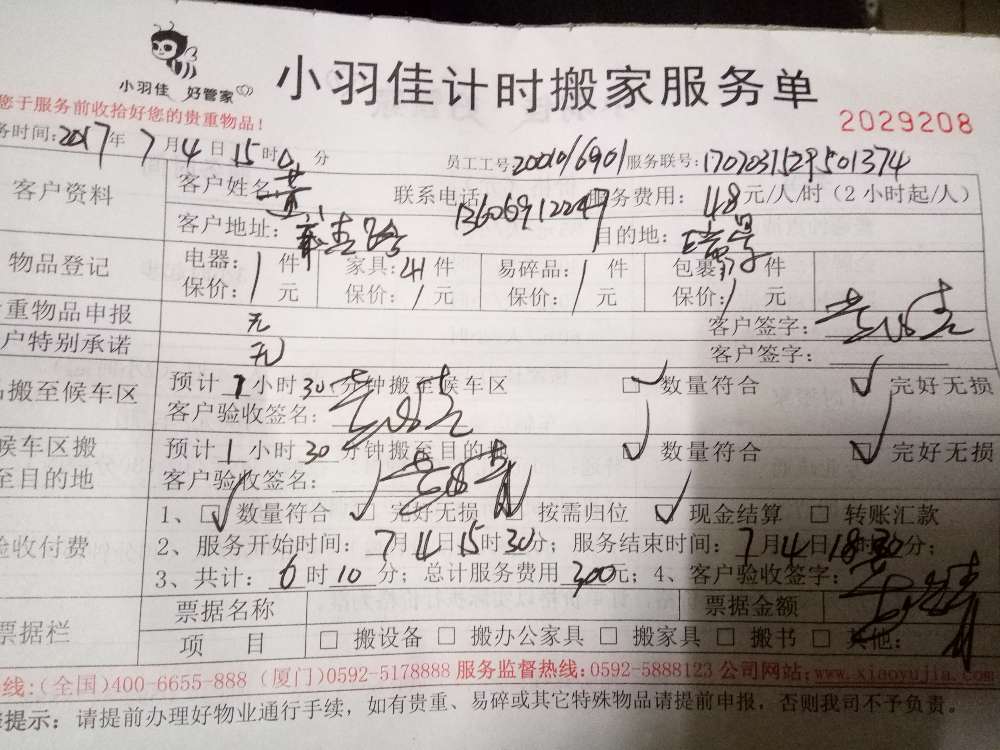 小羽佳 好管家
小羽佳计时搬家服务单
您于服务前收拾好您的贵重物品！
2029208
务时间：2017年7月4日15时0分 员工工号：20010/6901 服务联号：
客户资料
客户姓名：黄 联系电话：13606912249 服务费用：48元/人/时（2小时起/人）
客户地址： 目的地：瑞景
物品登记
电器：1件 家具：41件 易碎品：1件 包裹：件
保价：/元 保价：/元 保价：/元 保价：/元
重物品申报 无 客户签字：
户特别承诺 无 客户签字：
搬至候车区 预计1小时30分钟搬至候车区 ☑数量符合 ☑完好无损
客户验收签名：
候车区搬 预计1小时30分钟搬至目的地 ☑数量符合 ☑完好无损
至目的地 客户验收签名：
1、☑数量符合 ☑完好无损 □按需归位 ☑现金结算 □转账汇款
验收付费 2、服务开始时间：7月4日15时30分；服务结束时间：7月4日18时30分；
3、共计：6时10分；总计服务费用300元；4、客户验收签字：
票据栏 票据名称 票据金额
项 目 □搬设备 □搬办公家具 □搬家具 □搬书 □其他：
线：(全国)400-6655-888 (厦门)0592-5178888 服务监督热线：0592-5888123 公司网站：www.xiaoyujia.com
提示：请提前办理好物业通行手续，如有贵重、易碎或其它特殊物品请提前申报，否则我司不予负责。